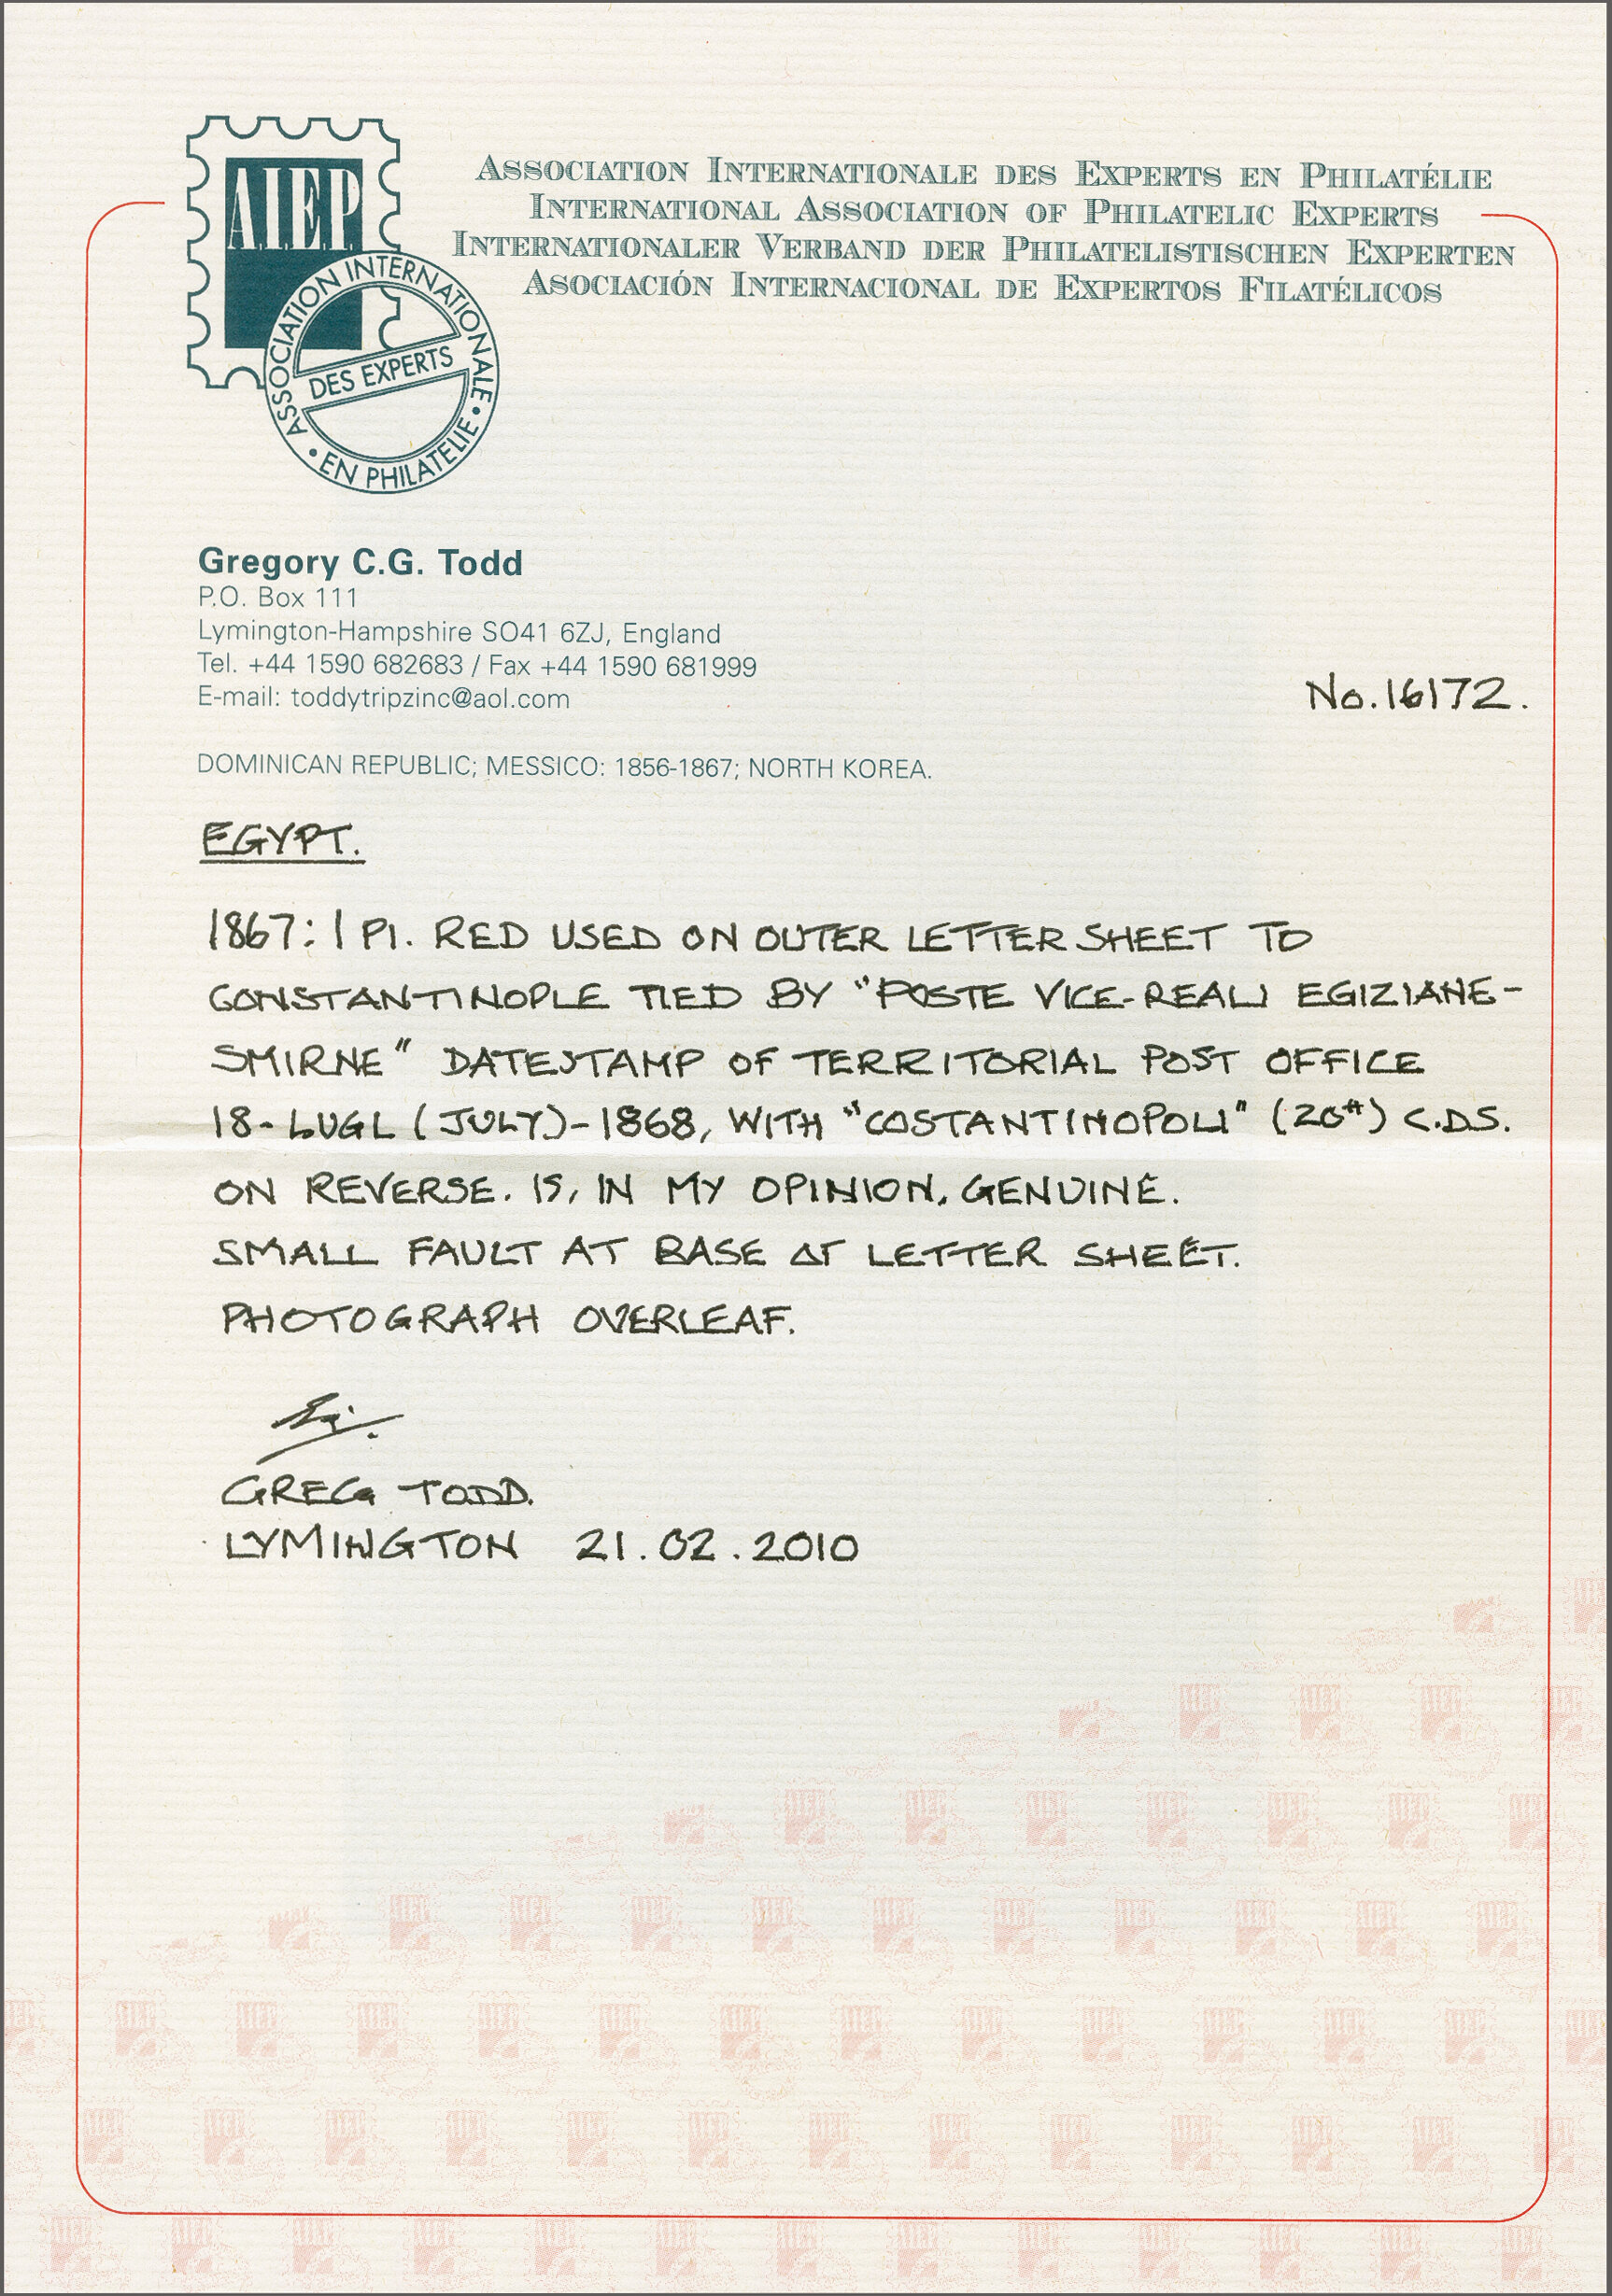 AIEP
ASSOCIATION INTERNATIONALE
DES EXPERTS
• EN PHILATELIE •
ASSOCIATION INTERNATIONALE DES EXPERTS EN PHILATÉLIE
INTERNATIONAL ASSOCIATION OF PHILATELIC EXPERTS
INTERNATIONALER VERBAND DER PHILATELISTISCHEN EXPERTEN
ASOCIACIÓN INTERNACIONAL DE EXPERTOS FILATÉLICOS
Gregory C.G. Todd
P.O. Box 111
Lymington-Hampshire SO41 6ZJ, England
Tel. +44 1590 682683 / Fax +44 1590 681999
E-mail: toddytripzinc@aol.com
No. 16172.
DOMINICAN REPUBLIC; MESSICO: 1856-1867; NORTH KOREA.
EGYPT.
1867: 1 PI. RED USED ON OUTER LETTER SHEET TO
CONSTANTINOPLE TIED BY "POSTE VICE-REALI EGIZIANE-
SMIRNE" DATESTAMP OF TERRITORIAL POST OFFICE
18-LUGL (JULY)-1868, WITH "COSTANTINOPOLI" (20th) C.D.S.
ON REVERSE. IS, IN MY OPINION, GENUINE.
SMALL FAULT AT BASE OF LETTER SHEET.
PHOTOGRAPH OVERLEAF.
GREG TODD.
LYMINGTON 21.02.2010